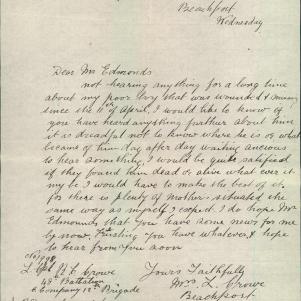 Beachport
Wednesday
Dear Mr Edmonds
not hearing anything for a long time
about my poor boy that was wounded & missing
since the 11th of April, I would like to know if
you have heard anything further about him
it is dreadful not to know where he is or what
became of him day after day waiting ancious
to hear something, I would be quite satisfied
if they found him dead or alive what ever it
my be I would have to make the best of it
for there is plenty of Mothers situated the
same way as myself I expect. I do hope Mr
Edmonds that you have some news for me
by now, Trusting you have whatever & hope
to hear from you soon
Yours Faithfully
Mrs L. Crowe
Beachport
Crowe
48th Battalion
Company 12th Brigade